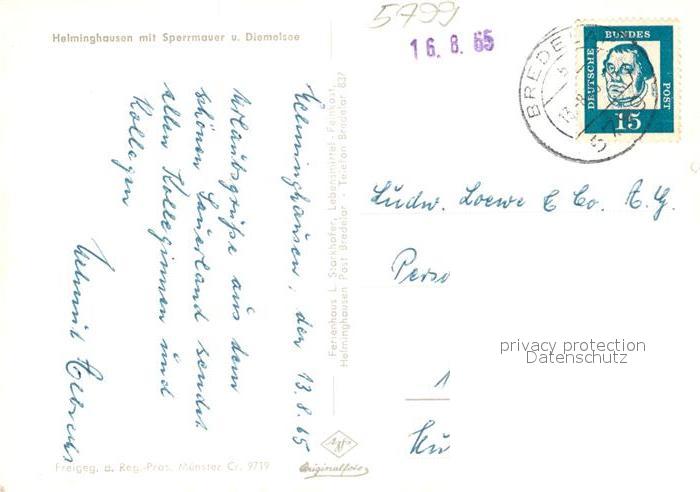 Helminghausen mit Sperrmauer u. Diemelsee
5799
16. 8. 65
BREDELAR
DEUTSCHE BUNDES POST
15
Helminghausen, den 13.8.65
Urlaubsgrüße aus dem
schönen Sauerland sendet
allen Kolleginnen und
Kollegen
Helmut
Ferienhaus L. Starkhofer, Lebensmittel-Feinkost,
Helminghausen Post Bredelar - Telefon Bredelar 837
Ludw. Loewe & Co. A.G.
Perso
privacy protection
Datenschutz
1
Agfa
Originalfoto
Freigeg. d. Reg.-Präs. Münster Cr. 9719